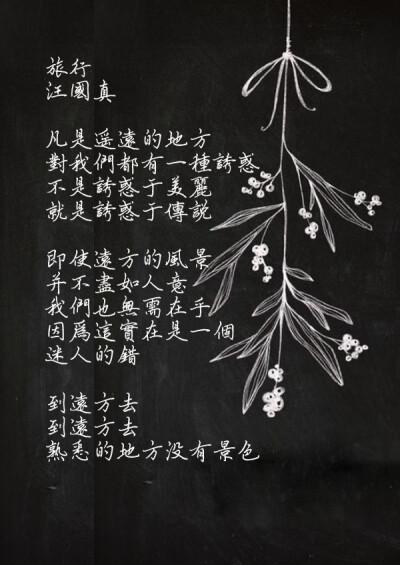 旅行
汪國真
凡是遥遠的地方
對我們都有一種誘惑
不是誘惑于美麗
就是誘惑于傳説
即使遠方的風景
并不盡如人意
我們也無需在乎
因爲這實在是一個
迷人的錯
到遠方去
到遠方去
熟悉的地方没有景色